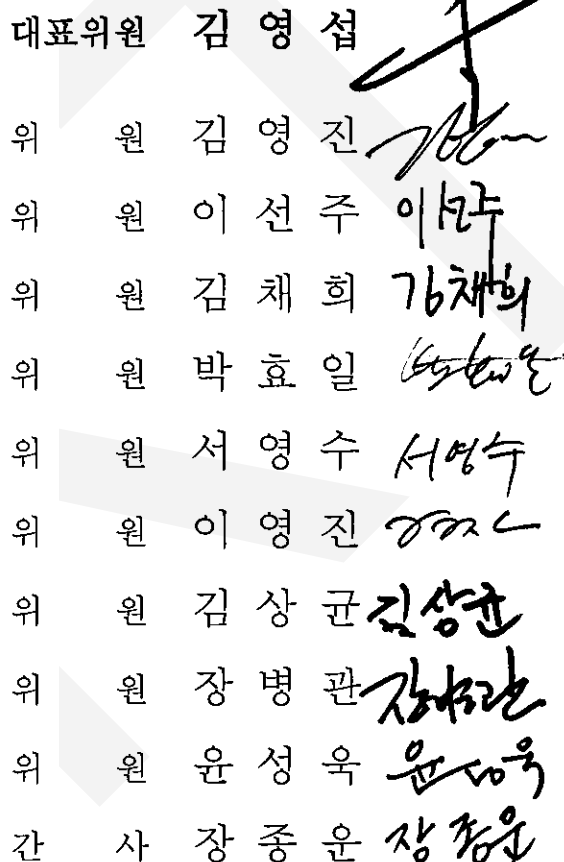 대표위원 김 영 섭
위 원 김 영 진
위 원 이 선 주 이선주
위 원 김 채 희 김채희
위 원 박 효 일
위 원 서 영 수 서영수
위 원 이 영 진
위 원 김 상 균 김상균
위 원 장 병 관
위 원 윤 성 욱 윤성욱
간 사 장 종 운 장종운